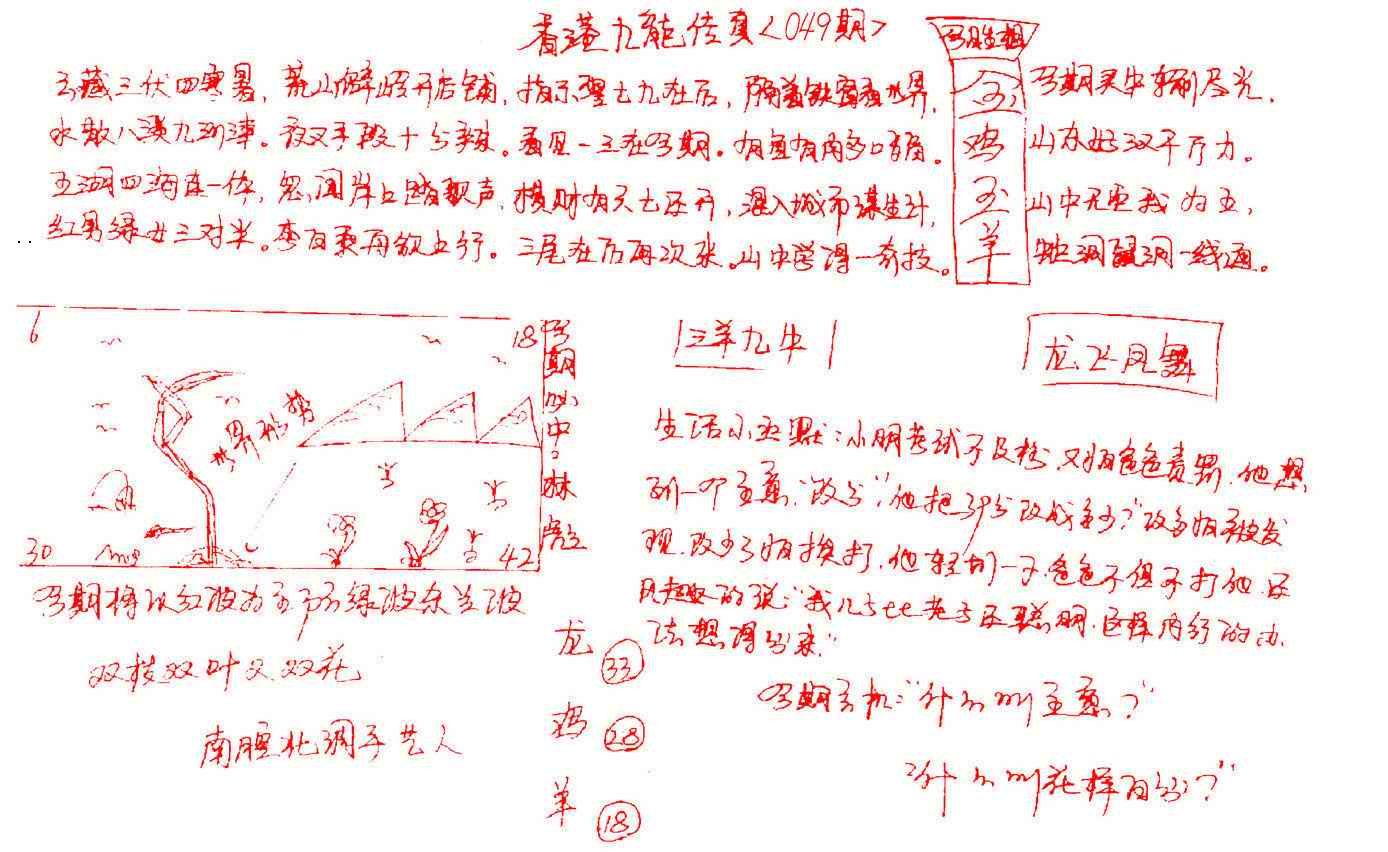 香港九龍传真<049期>
今期生肖
云藏三伏四寒暑，荒山僻路开店铺，指示望七九在后，隔着铁窗看世界，
今期买中
水散八溪九洲津。夜叉手段十分辣。看见一三在今期。有鱼有肉多口角。
山东好汉千斤力。
五湖四海连一体，忽闻岸上踏歌声，横财有天七还开，混入城市谋生计，
山中无虎我为王，
红男绿女三对半。李白乘舟欲上行。三尾在后再次来。山中学得一奇技。
洞一线通。
鸡
羊
6
18
30
42
世界形势
今期必中
三羊九牛
龙飞凤舞
生活小幽默：小明考试不及格，又怕爸爸责骂，他想
到一个主意，“改分”，他把 改成多少？改多怕被发
现，改少了怕挨打，他 一下，爸爸不但不打他，还
风趣的说：“我儿 比老 还聪明，这样内行的办
法想得出来。”
今期将以红波为主 绿波 波
双枝双叶又双花
南腔北调手艺人
龙 33
鸡 28
羊 18
今期玄机：“什么叫主意？”
“什么叫花样百出？”